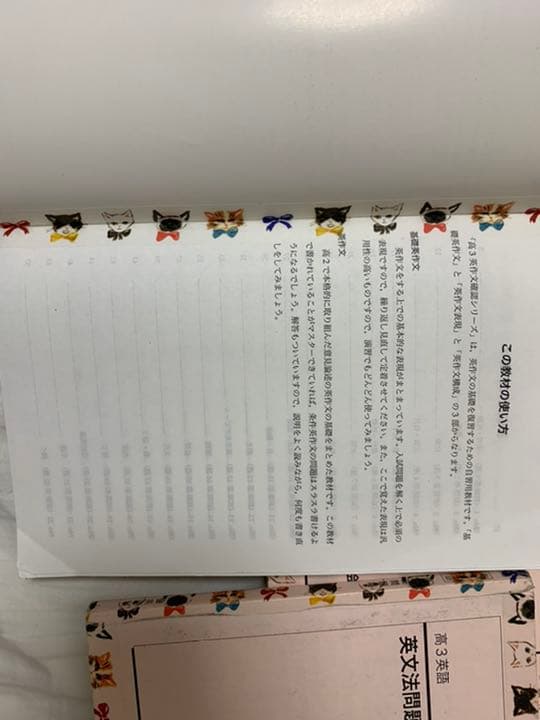 この教材の使い方
「高3英作文確認シリーズ」は、英作文の基礎を復習するための自習用教材です。「基
礎英作文」と「英作文表現」と「英作文構成」の3部からなります。
基礎英作文
英作文をする上での基本的な表現がまとまっています。入試問題を解く上で必須の
表現ですので、繰り返し見直して定着させてください。また、ここで覚えた表現は汎
用性の高いものですので、演習でもどんどん使ってみましょう。
英作文
高2で本格的に取り組んだ意見論述の英作文の基礎をまとめた教材です。この教材
で書かれていることがマスターできていれば、条件英作文の問題はスラスラ書けるよ
うになるでしょう。解答もついていますので、説明をよく読みながら、何度も書き直
しをしてみましょう。
高3英語
英文法問題